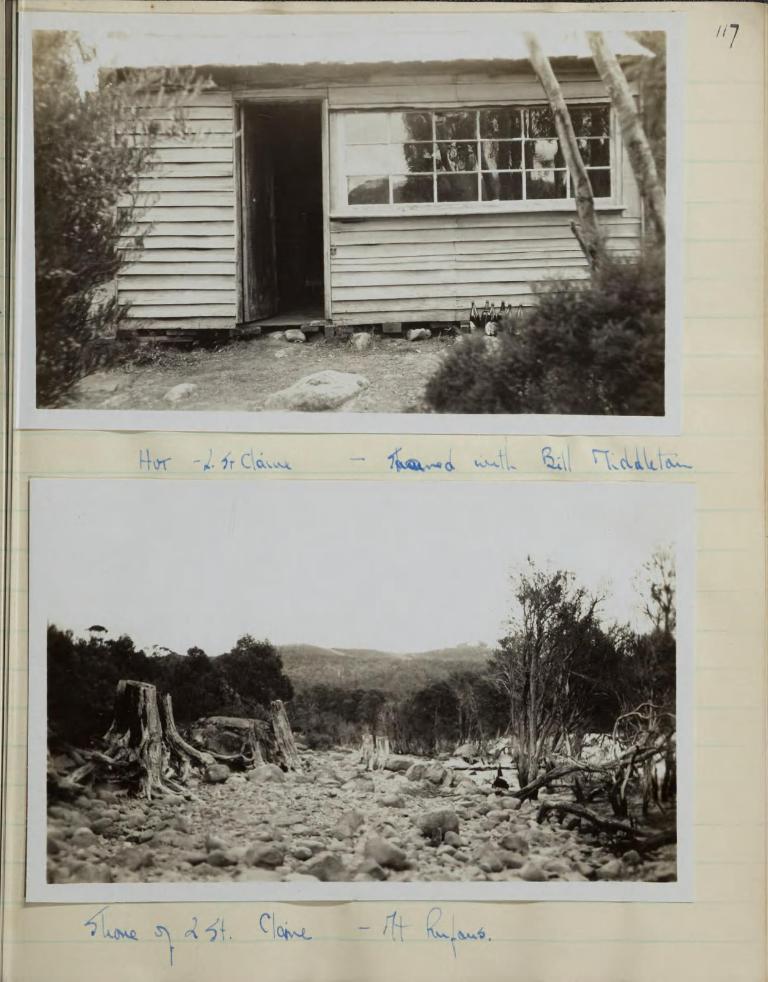 117
Hut - L. St Claire - Shared with Bill Middleton
Shore of L St. Claire - Mt Rufus.